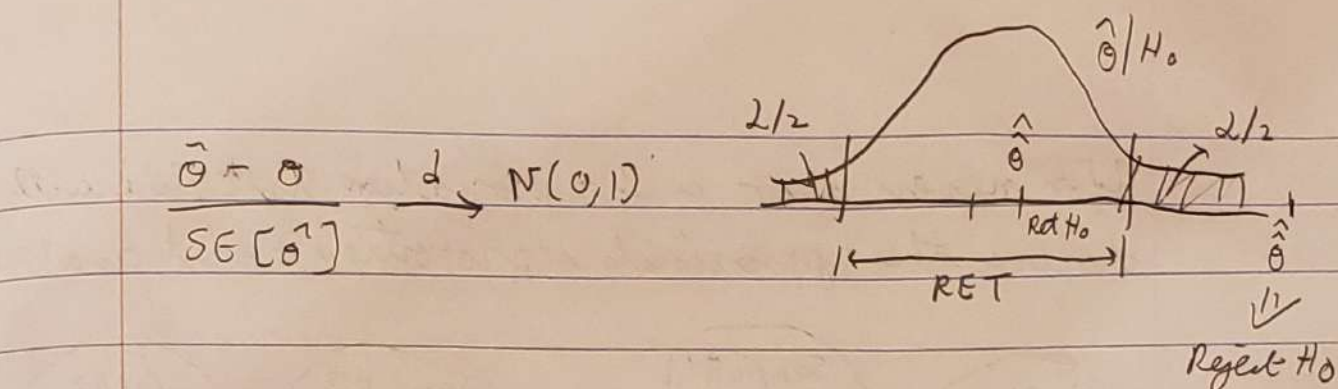 θ̂ - θ / SE[θ̂] →d N(0,1)
θ̂/H₀
α/2
α/2
θ̂̂
Ret H₀
RET
θ̂̂
Reject H₀